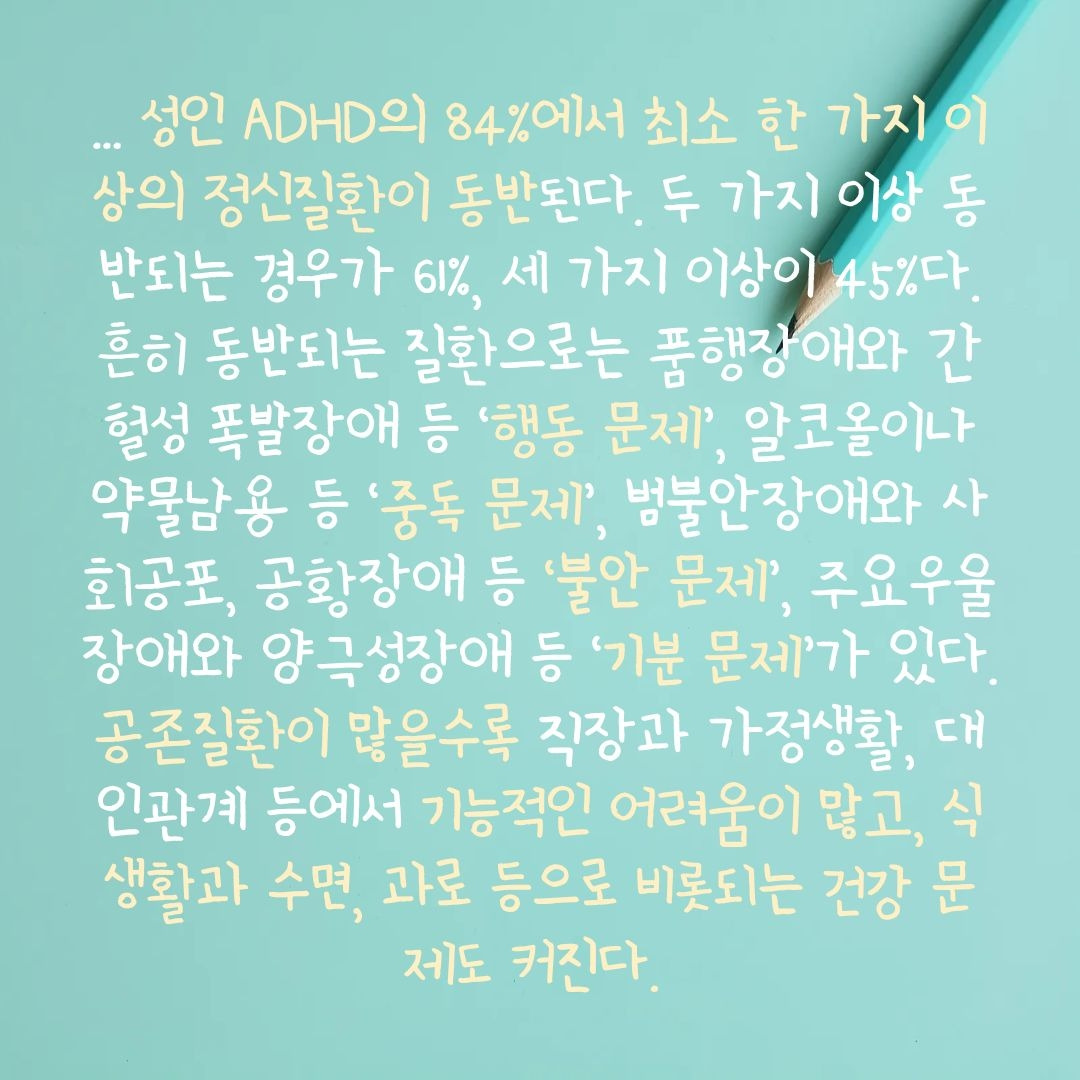 ... 성인 ADHD의 84%에서 최소 한 가지 이
상의 정신질환이 동반된다. 두 가지 이상 동
반되는 경우가 61%, 세 가지 이상이 45%다.
흔히 동반되는 질환으로는 품행장애와 간
헐성 폭발장애 등 ‘행동 문제’, 알코올이나
약물남용 등 ‘중독 문제’, 범불안장애와 사
회공포, 공황장애 등 ‘불안 문제’, 주요우울
장애와 양극성장애 등 ‘기분 문제’가 있다.
공존질환이 많을수록 직장과 가정생활, 대
인관계 등에서 기능적인 어려움이 많고, 식
생활과 수면, 과로 등으로 비롯되는 건강 문
제도 커진다.